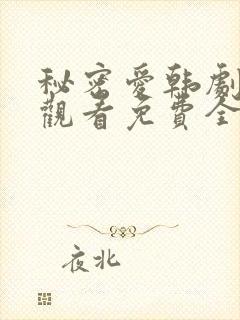 秘密愛韩劇
觀看免費全
夜北